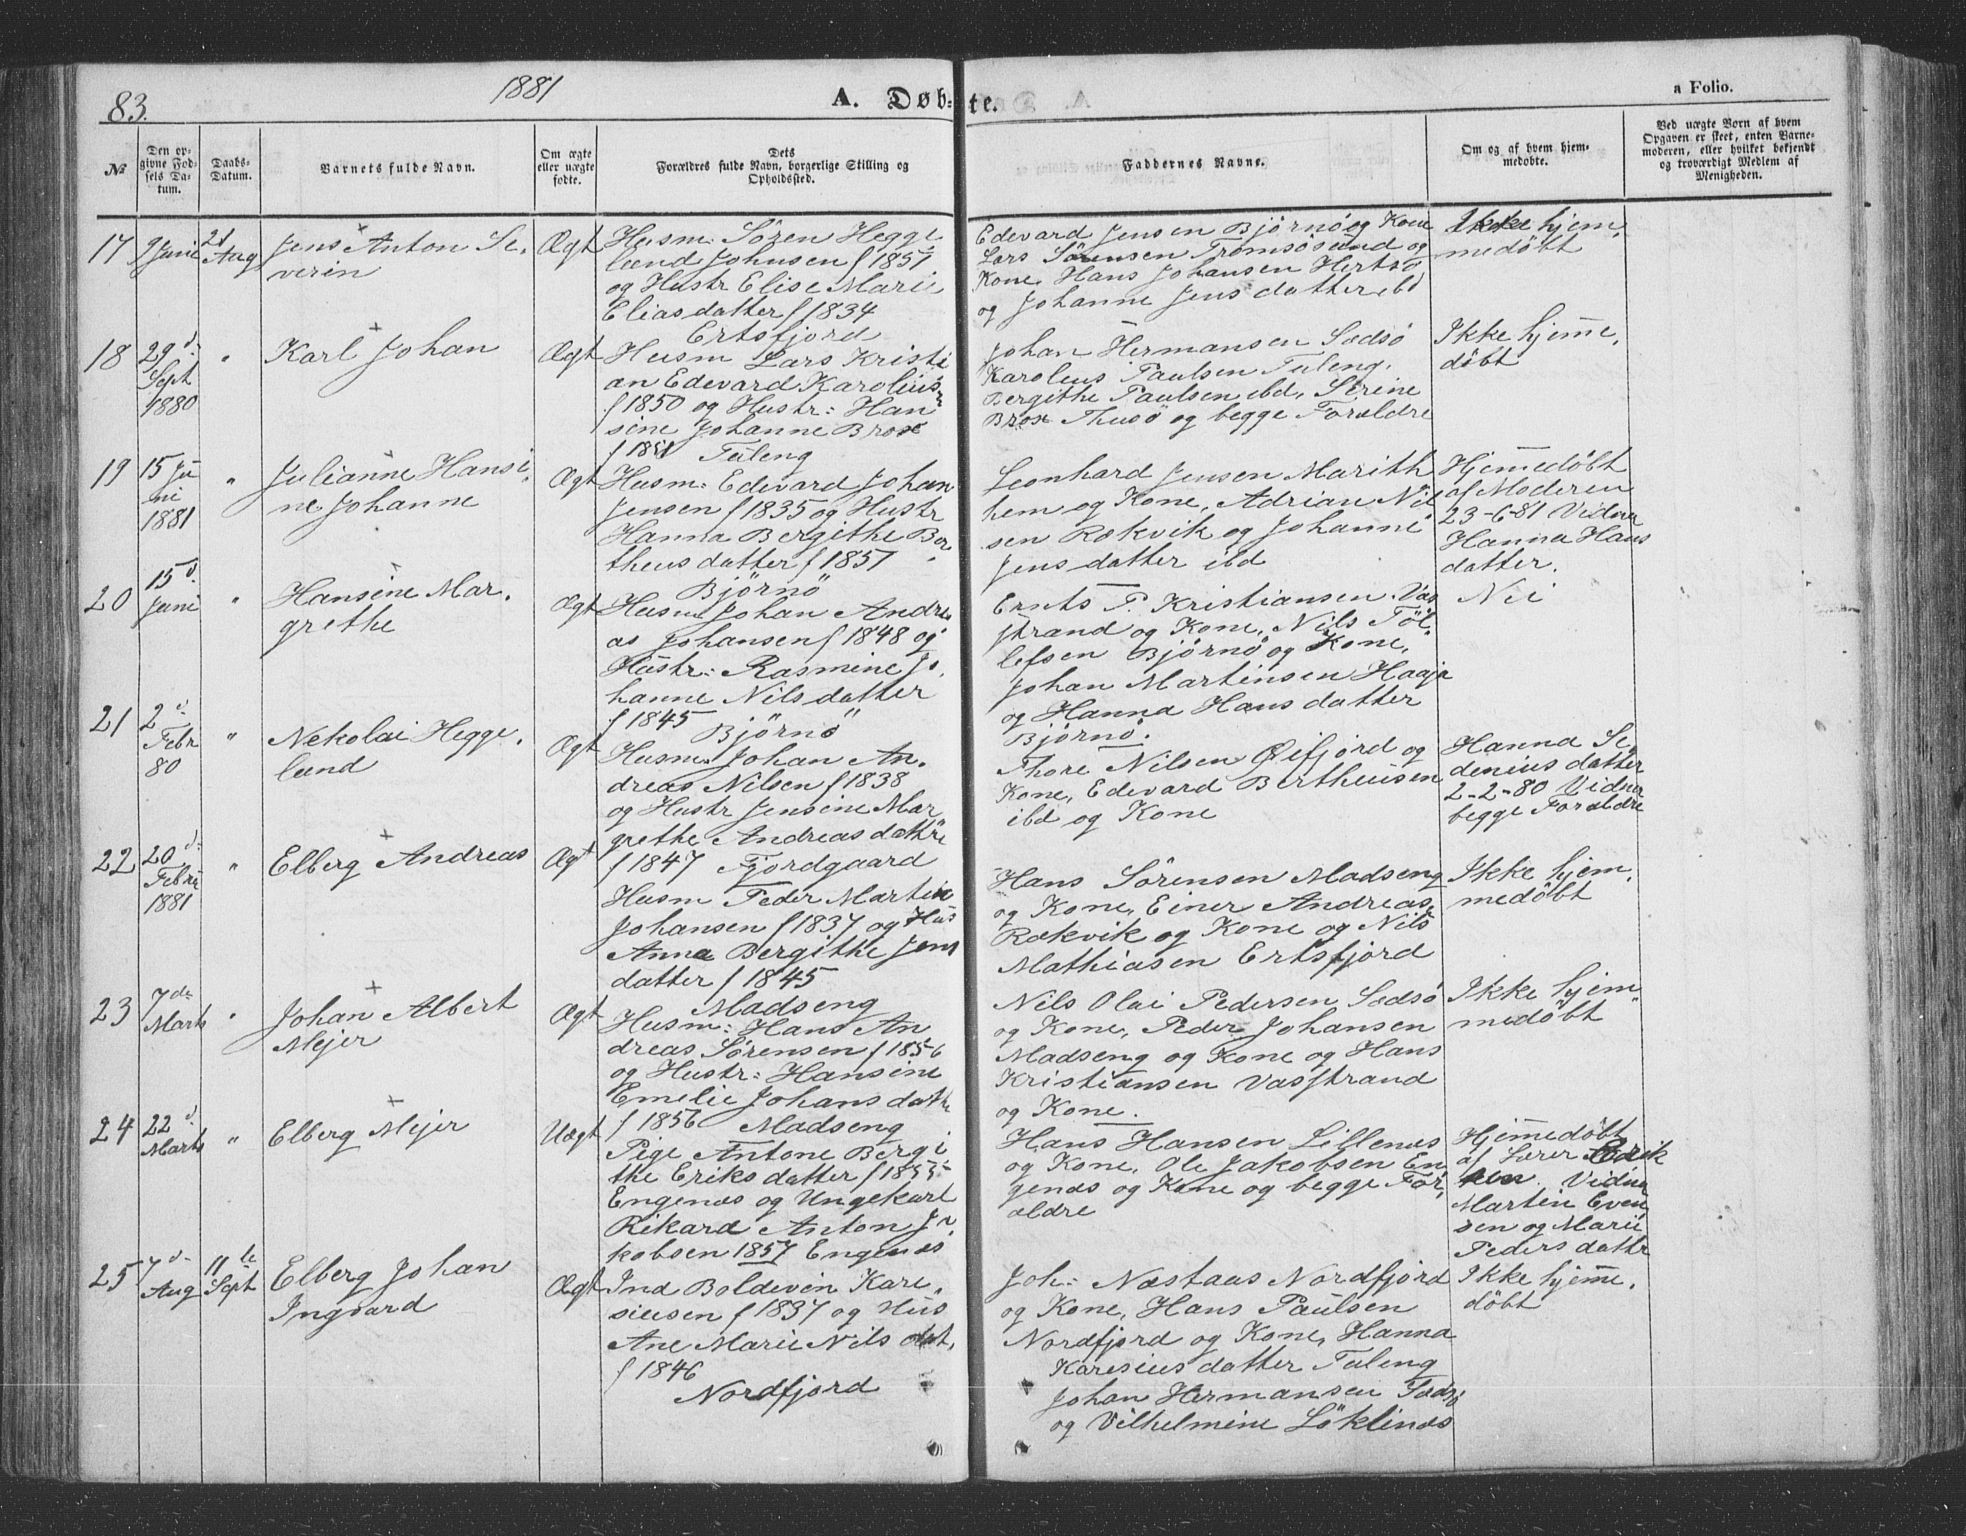 83.
1881
A. Døbte.
a Folio.
№
Den opgivne Fødsels Datum.
Daabs-Datum.
Barnets fulde Navn.
Om ægte eller uægte fødte.
Dets Forældres fulde Navn, borgerlige Stilling og Opholdssted.
Faddernes Navne.
Om og af hvem hjemmedøbte.
Ved uægte Børn af hvem Opgaven er skeet, enten Barnemoderen, eller hvilket bekjendt og troværdigt Medlem af Menigheden.
17
9 Juni
21 Aug
Jens Anton Se-
verin
Ægt
Husm: Sören Hegge
lund Johnsen f 1851
og Hustr Elise Marie
Eliasdatter f 1834
Ertsfjord
Edevard Jensen Björnö og Kone
Lars Sörensen Tromsösund og
Kone, Hans Johansen Hertsö
og Johanne Jensdatter ibd
Ikke hjem,
medöbt
18
29 d.
Sept
1880
"
Karl Johan
Ægt
Husm Lars Kristi
an Edevard Karolius-
f 1850 og Hustr: Han
sine Johanne Brox
f 1851 Tuleng
Johan Hermansen Sædsö
Karolius Paulsen Tuleng,
Bergithe Paulsen ibd, Serine
Brox Thusö og begge Forældre
Ikke hjemme,
döbt
19
15 Ju
ni
1881
"
Julianne Hansi,
ne Johanne
Ægt
Husm: Edevard Johan
Jensen f 1835 og Hustr
Hanna Bergithe Ber
theusdatter f 1851
Björnö
Leonhard Jensen Marith
hem og Kone, Adrian Nil
sen Rækvik og Johanne
Jensdatter ibd
Hjemmedöbt
af Moderen
23-6-81 Vidna
Hanna Hans
datter.
20
15 d.
Juni
"
Hansine Mar,
grethe
Ægt
Husm Johan Andre
as Johansen f 1848 og
Hustr: Rasmine Jo,
hanne Nilsdatter
f 1845 Björnö
Ernts P. Kristiansen Vas
strand og Kone, Nils Töl
lefsen Björnö og Kone,
Johan Martinsen Haaja
og Hanna Hansdatter
Björnö.
Nei
21
2 d.
Febr
80
"
Nekolai Hegge,
lund
Ægt
Husm: Johan An,
dreas Nilsen f 1838
og Hustr Jensine Mar
grethe Andreasdattr
f 1847 Fjordgaard
Thore Nilsen Öifjord og
Kone, Edevard Bertheusen
ibd og Kone
Hanna Se,
denius datter
2-2-80 Vidna
begge Forældre
22
20 d.
Febru
1881
"
Elberg Andreas
Ægt
Husm Peder Martin
Johansen f 1837 og Hus
Anna Bergithe Jens
datter f 1845
Madseng
Hans Sörensen Madseng
og Kone, Einer Andreas,
Rækvik og Kone og Nils
Mathiasen Ertsfjord
Ikke hjem,
medöbt
23
7 de
Marts
"
Johan Albert
Mejer
Ægt
Husm: Hans An
dreas Sörensen f 1856
og Hustr: Hansine
Emelie Johansdatte
f 1856 Madseng
Nils Olai Pedersen Sædsö
og Kone, Peder Johansen
Madseng og Kone og Hans
Kristiansen Vasstrand
og Kone.
Ikke hjem
medöbt
24
22 d.
Marts
"
Elberg Mejer
Uægt
Pige Antone Bergi
the Eriksdatter f 1855
Engenæs og Ungekarl
Rikard Anton Ja
kobsen 1857 Engenæs
Hans Hansen Lillenæs
og Kone, Ole Jakobsen En
genæs og Kone og begge For,
ældre
Hjemmedöbt
af Lærer Erik
sen Vidna
Martin Even
sen og Marie
Peders dattr
25
7 d.
Aug
11 te
Sept
Elberg Johan
Ingvard
Ægt
Ind Boldevin Kare,
siusen f 1837 og Hus
Ane Marie Nilsdat,
f 1846
Nordfjord
Joh: Næstaas Nordfjord
og Kone, Hans Paulsen
Nordfjord og Kone, Hanna
Karesiusdatter Tuleng
Johan Hermansen Sædsö
og Vilhelmine Löklinæs
Ikke hjemme,
döbt